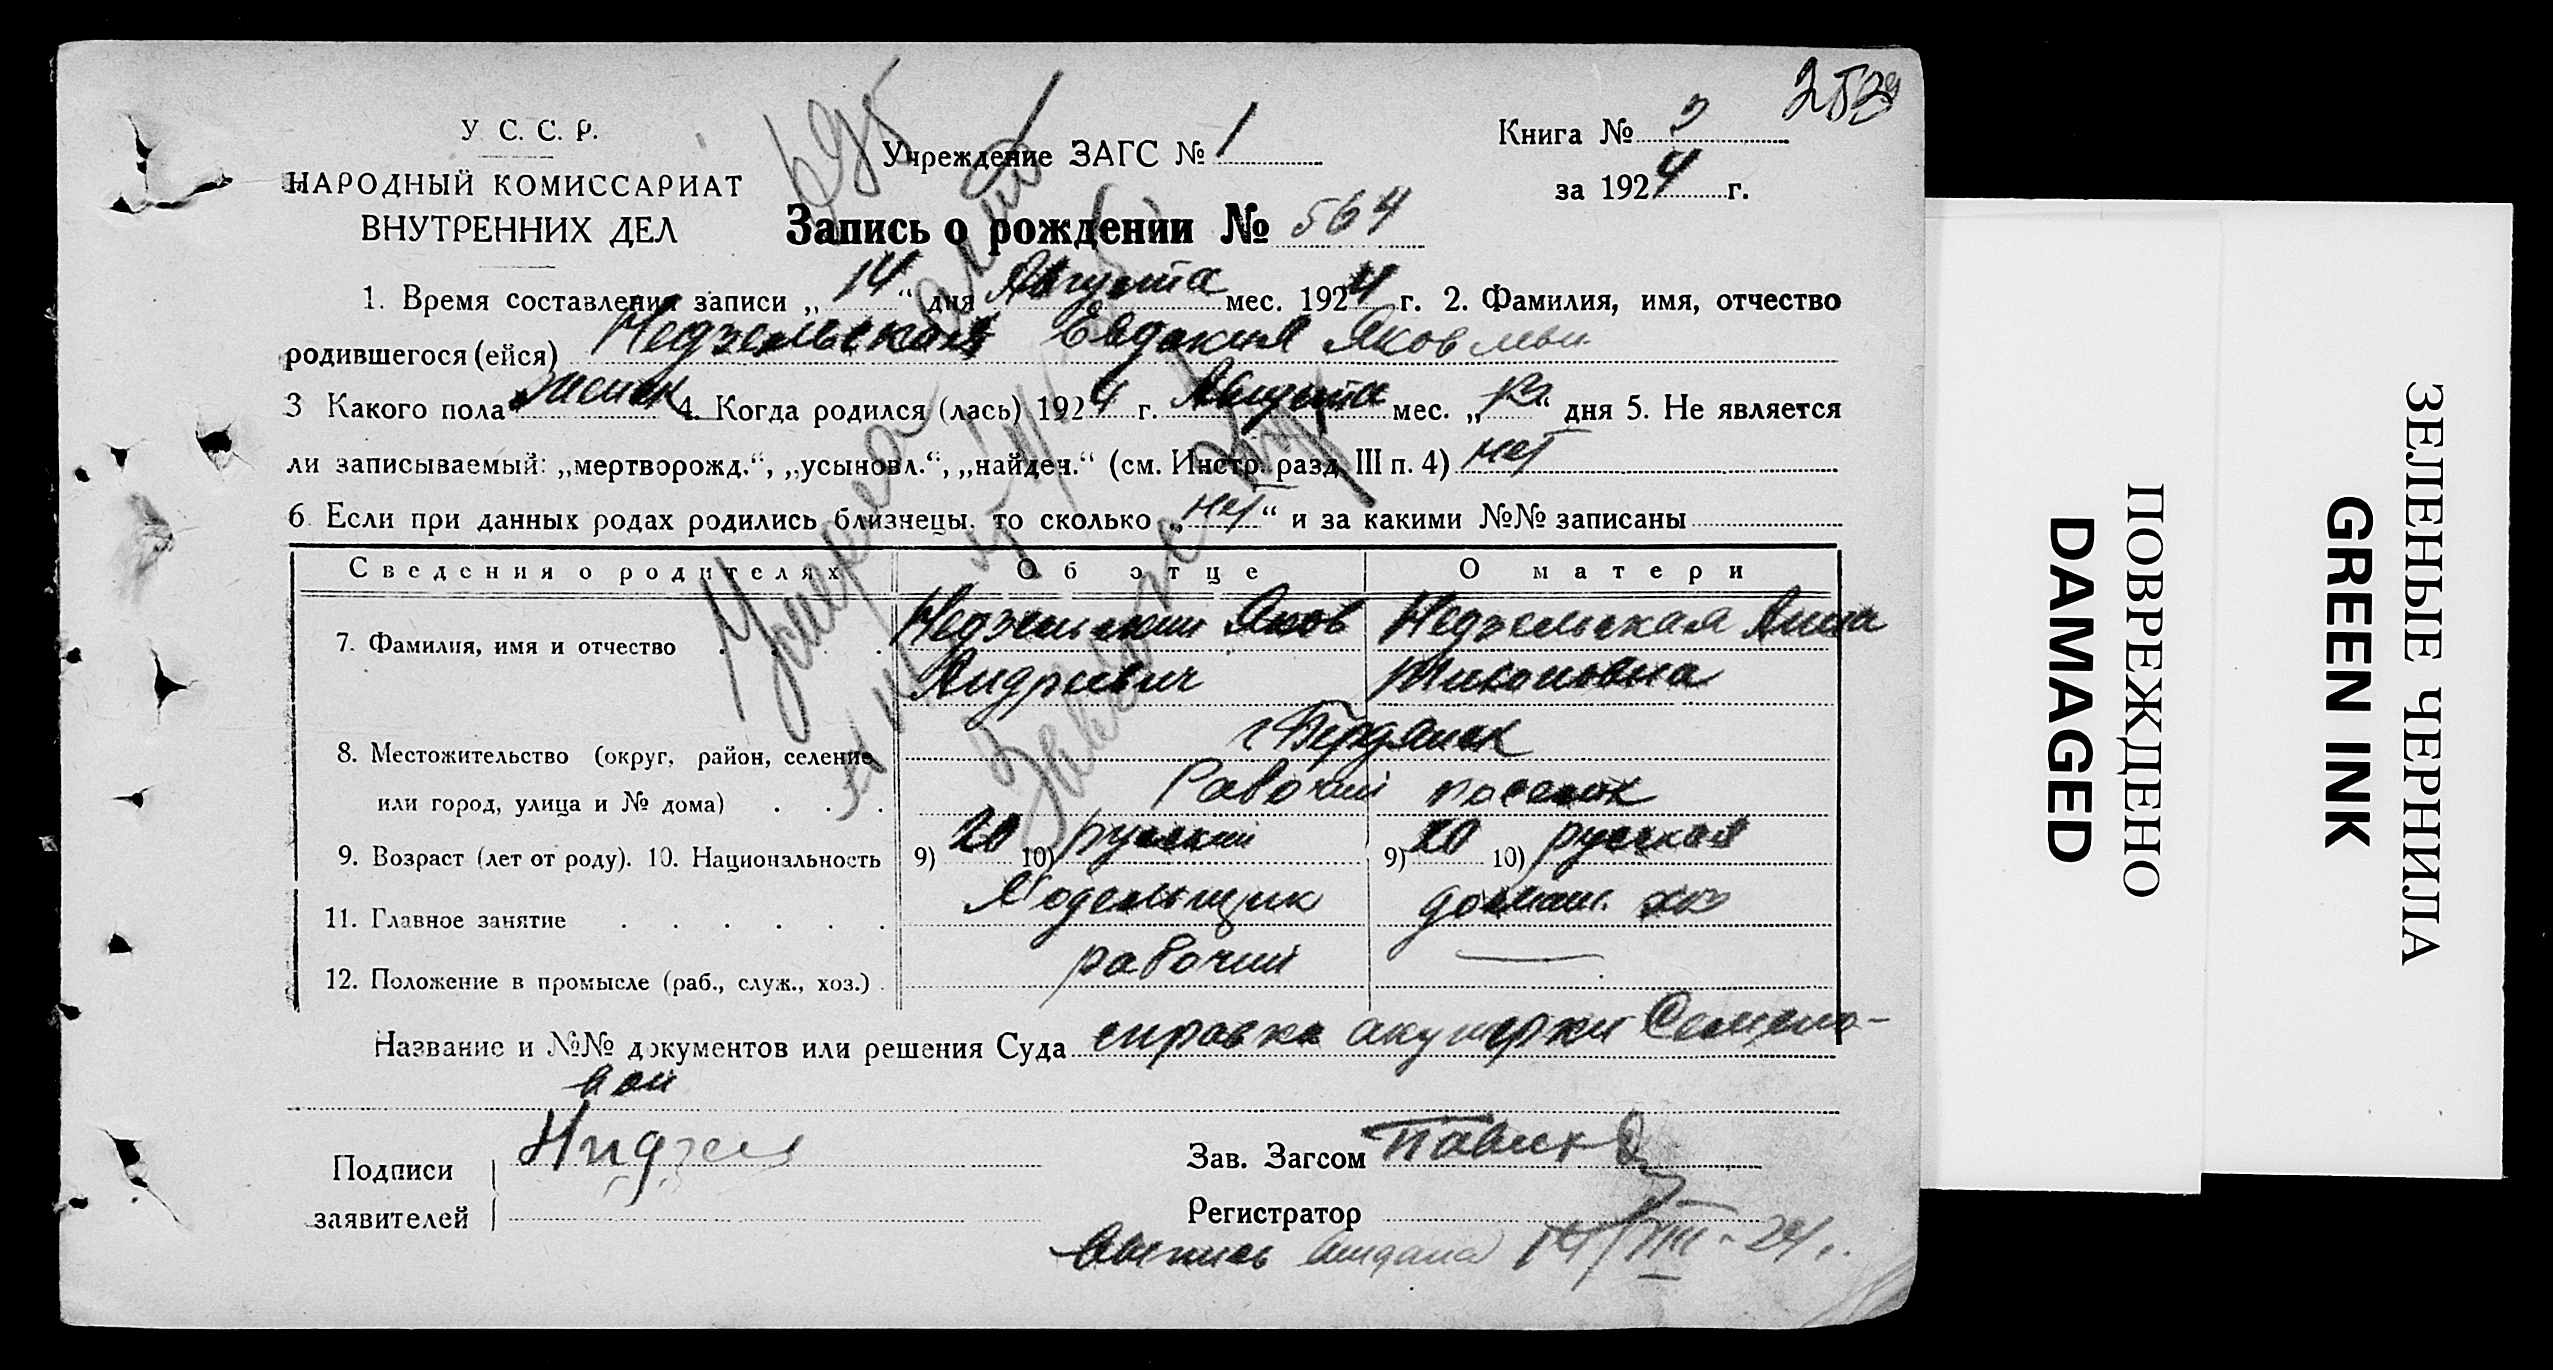 253
У. С. С. Р.
НАРОДНЫЙ КОМИССАРИАТ
ВНУТРЕННИХ ДЕЛ
Учреждение ЗАГС № 1
Книга №
за 1924 г.
Запись о рождении № 564
1. Время составления записи „14“ дня Августа мес. 1924 г. 2. Фамилия, имя, отчество
родившегося (ейся) Недзельская Евдокия Яковлевн
3 Какого пола женск 4. Когда родился (лась) 1924 г. Августа мес. „ “ дня 5. Не является
ли записываемый: „мертворожд.“, „усыновл.“, „найден.“ (см. Инстр. разд. III п. 4) нет
6. Если при данных родах родились близнецы, то сколько „нет“ и за какими №№ записаны
Сведения о родителях Об отце О матери
7. Фамилия, имя и отчество Недзельский Яков Недзельская Анна
Андреевич
8. Местожительство (округ, район, селение г Бердянск
или город, улица и № дома) Рабочий поселок
9. Возраст (лет от роду). 10. Национальность 9) 20 10) русский 9) 20 10) русская
11. Главное занятие Модельщик домаш. хоз
12. Положение в промысле (раб., служ., хоз.) рабочий —
Название и №№ документов или решения Суда справка акушерки Семено-
вой
Подписи
заявителей
Зав. Загсом
Регистратор
Выпись выдана 14/VIII-24 г.
Умерла
695
ПОВРЕЖДЕНО
DAMAGED
ЗЕЛЕНЫЕ ЧЕРНИЛА
GREEN INK